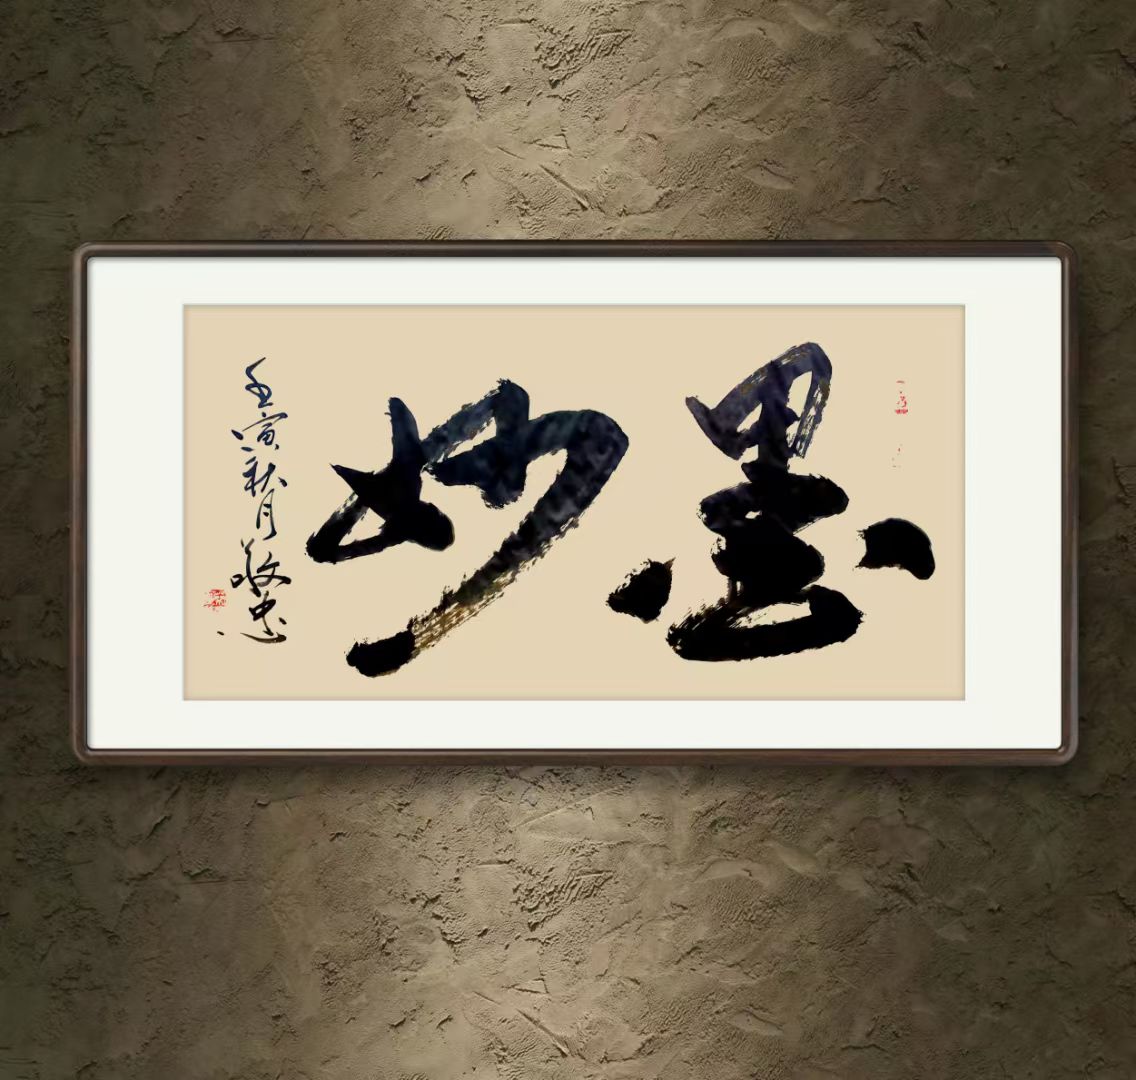 墨妙
壬寅秋月敬忠